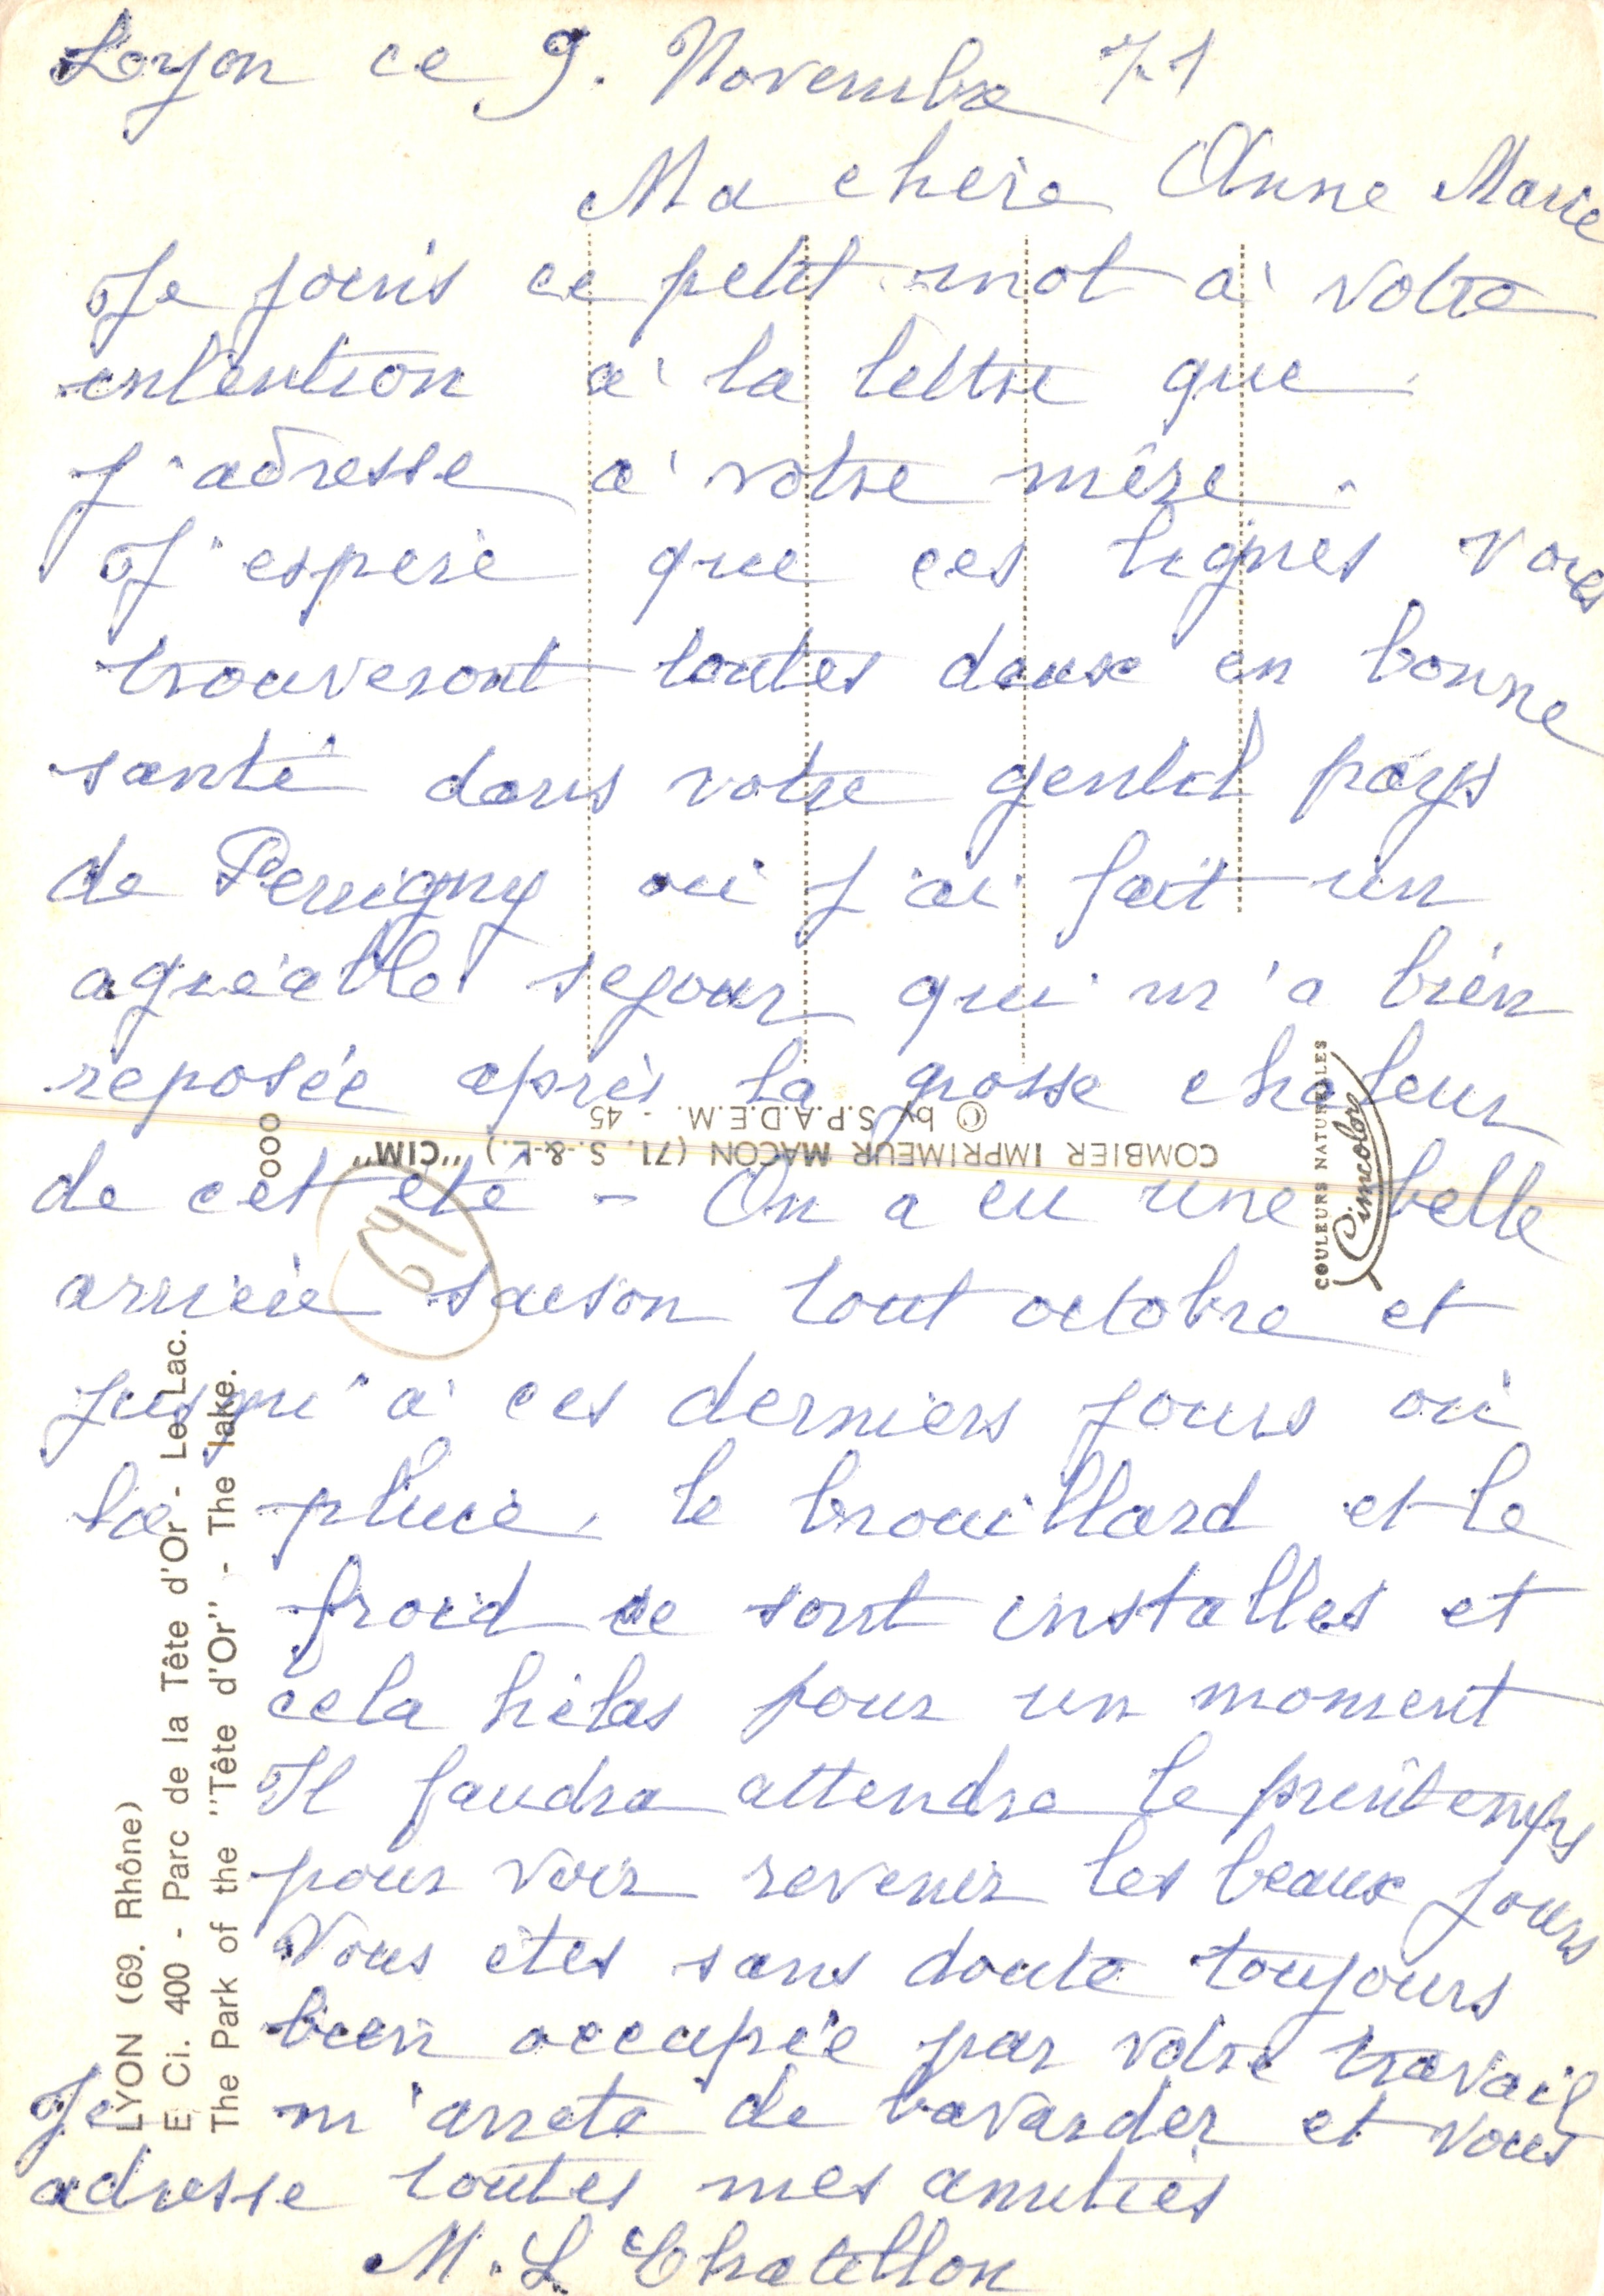 Lyon ce 9. Novembre 71
Ma chère Anne Marie
Je joins ce petit mot à votre
intention à la lettre que
j'adresse à votre mère.
J'espère que ces lignes vous
trouveront toutes deux en bonne
santé dans votre gentil pays
de Perrigny où j'ai fait un
agréable sejour qui m'a bien
reposée après la grosse chaleur
de cet été - On a eu une belle
arrière saison tout octobre et
jusqu'à ces derniers jours où
la pluie, le brouillard et le
froid se sont installes et
cela hélas pour un moment
Il faudra attendre le printemps
pour voir revenir les beaux jours
Vous êtes sans doute toujours
bien occupée par votre travail
Je m'arrete de bavarder et vous
adresse toutes mes amitiés
M. L Chatellon
LYON (69. Rhône)
E Ci. 400 - Parc de la Tête d'Or - Le Lac.
The Park of the "Tête d'Or" - The lake.
COMBIER IMPRIMEUR MACON (71. S.-&-L.) "CIM"
© by S.P.A.D.E.M. - 45
000
COULEURS NATURELLES
Cimcolore